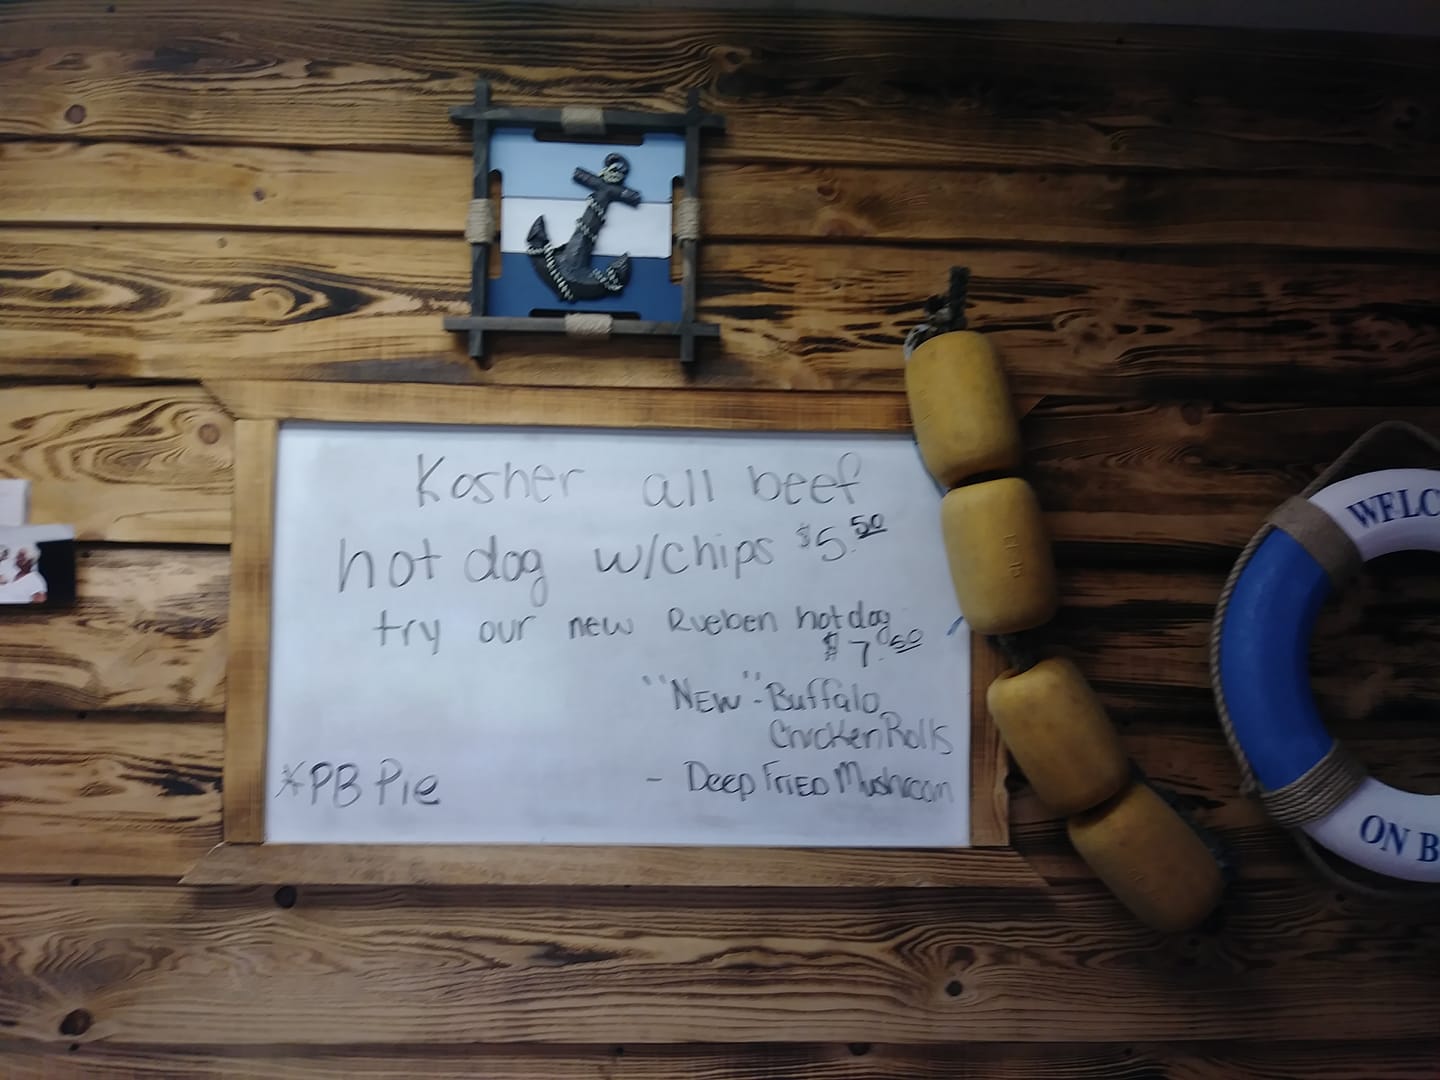 Kosher all beef
hot dog w/chips $5.50
try our new Rueben hot dog
$7.50
"NEW" - Buffalo
Chicken Rolls
- DEEP FRIED Mushroom
*PB Pie
WELC
ON B